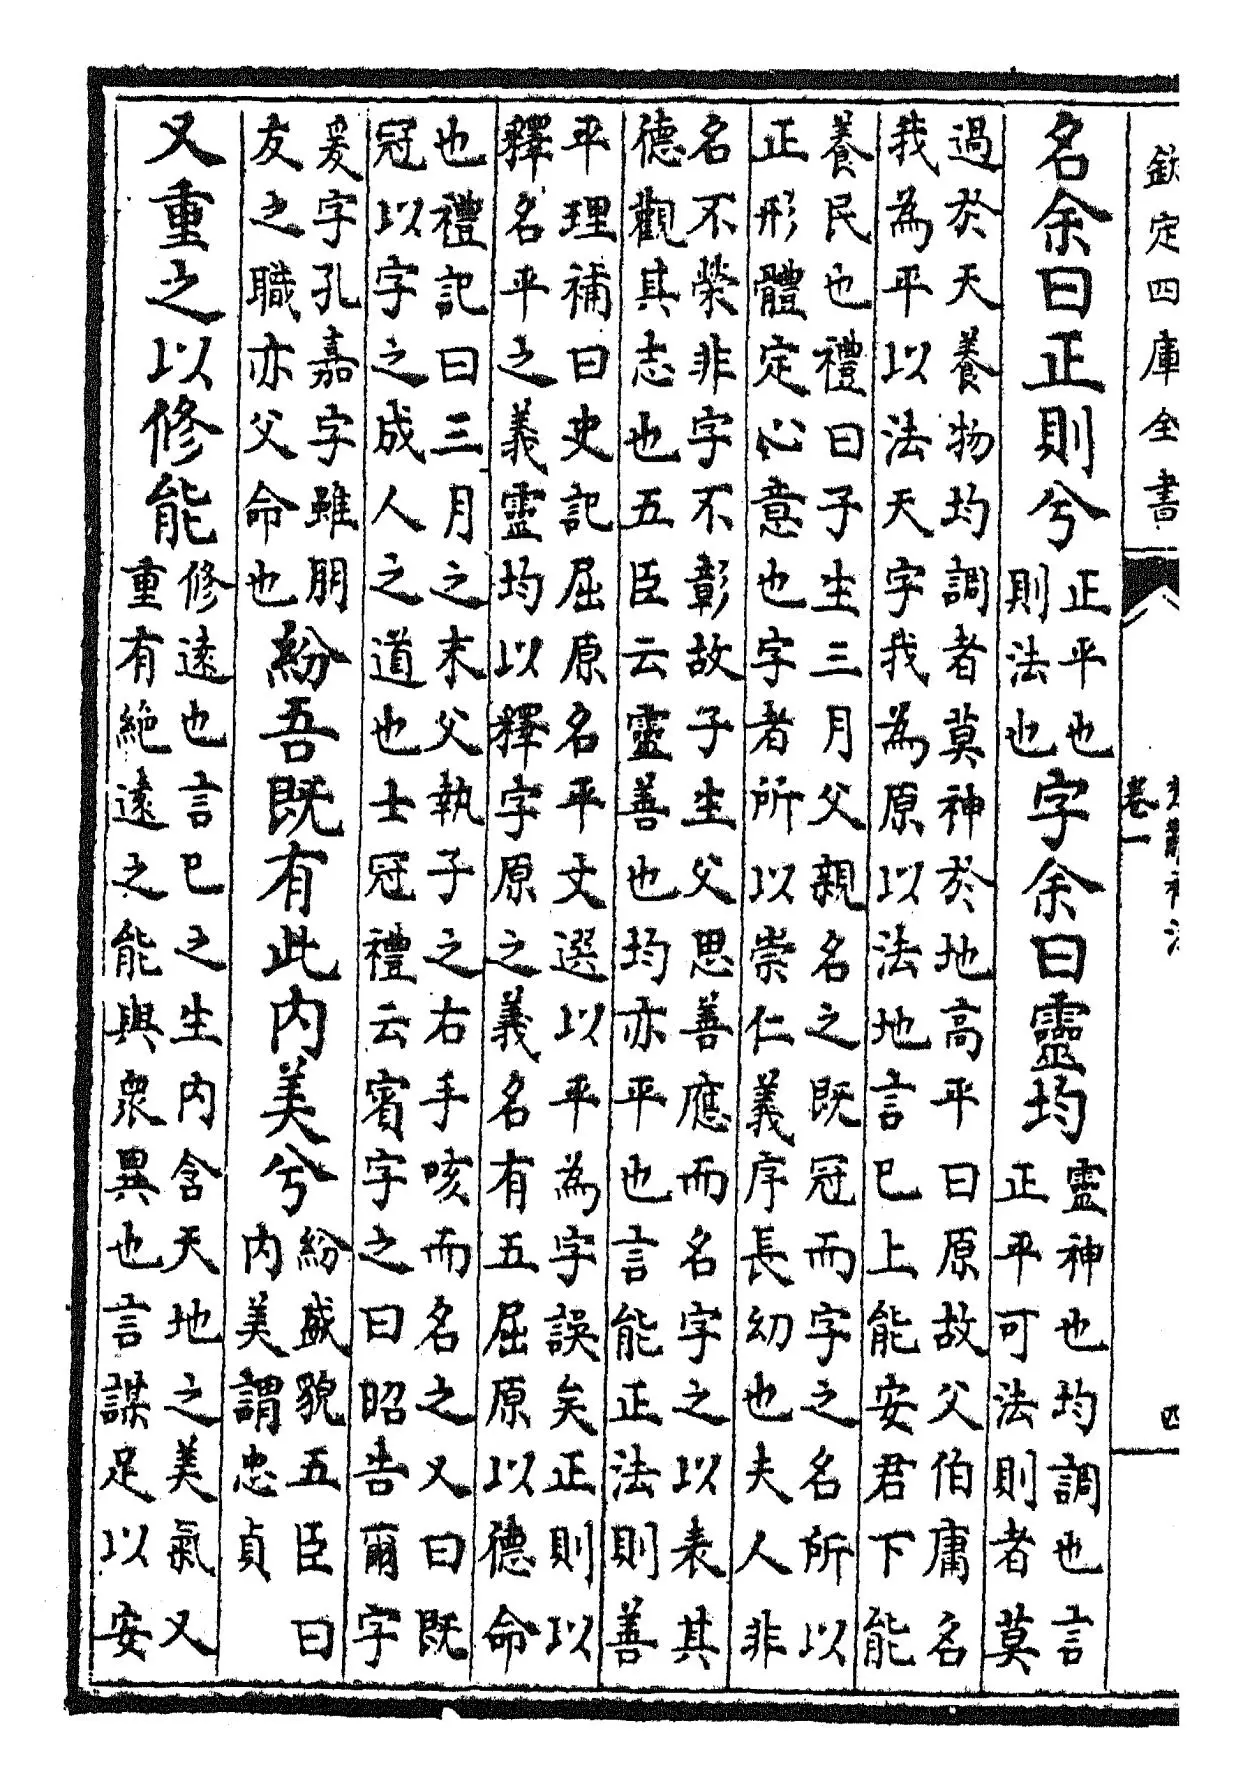 欽定四庫全書
楚辭補注
卷一
四
名余曰正則兮正平也則法也字余曰靈均靈神也均調也言正平可法則者莫
過於天養物均調者莫神於地高平曰原故父伯庸名
我為平以法天字我為原以法地言已上能安君下能
養民也禮曰子生三月父親名之既冠而字之名所以
正形體定心意也字者所以崇仁義序長幼也夫人非
名不榮非字不彰故子生父思善應而名字之以表其
德觀其志也五臣云靈善也均亦平也言能正法則善
平理補曰史記屈原名平文選以平為字誤矣正則以
釋名平之義靈均以釋字原之義名有五屈原以德命
也禮記曰三月之末父執子之右手咳而名之又曰既
冠以字之成人之道也士冠禮云賓字之曰昭告爾字
爰字孔嘉字雖朋友之職亦父命也紛吾既有此内美兮紛盛貌五臣曰内美謂忠貞
又重之以修能修遠也言已之生内含天地之美氣又重有絶遠之能與衆異也言謀足以安